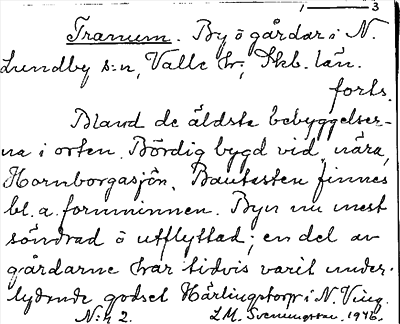 1 — 3
Tranum. By o gårdar i N.
Lundby s:n, Valle hd, Skb. län.
forts.
Bland de äldsta bebyggelser-
na i orten. Bördig bygd vid, nära,
Hornborgasjön. Bautasten finnes
bl. a. fornminnen. Byn nu mest
söndrad o utflyttad; en del av
gårdarne har tidvis varit under-
lydande godset Härlingstorp i N. Ving.
N:r 2. L.M. Svenungsson. 1946.